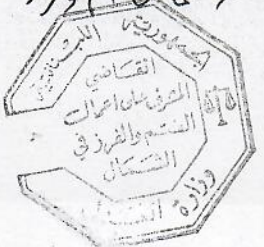 الجمهورية اللبنانية
القاضي
المشرف على اعمال
الضم والفرز في
الشمال
وزارة